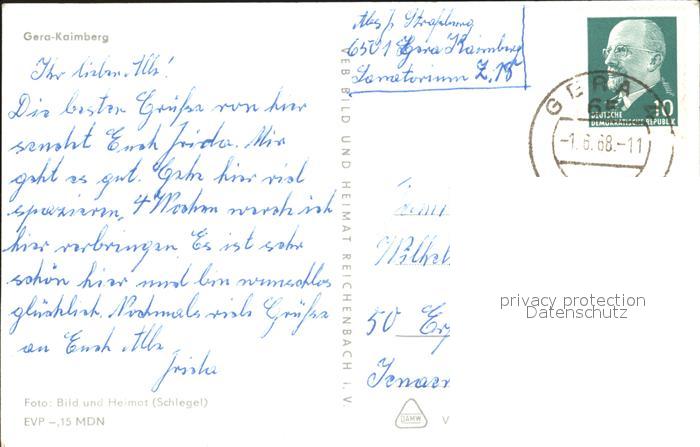 Gera-Kaimberg
Ihr lieben Alle!
Die besten Grüße von hier
sendet Euch Frida. Mir
geht es gut. Gehe hier viel
spazieren, 4 Wochen werde ich
hier verbringen Es ist sehr
schön hier und bin wunschlos
glücklich. Nochmals viele Grüße
an Euch Alle
Frida
Foto: Bild und Heimat (Schlegel)
EVP -,15 MDN
VEB BILD UND HEIMAT REICHENBACH i. V.
Abs.
6501 Gera Kaimberg
Sanatorium Z. 18
DEUTSCHE
DEMOKRATISCHE REPUBLIK
10
GERA
65
-1.6.68.-11
Wilhel
50 Er
privacy protection
Datenschutz
DAMW
V